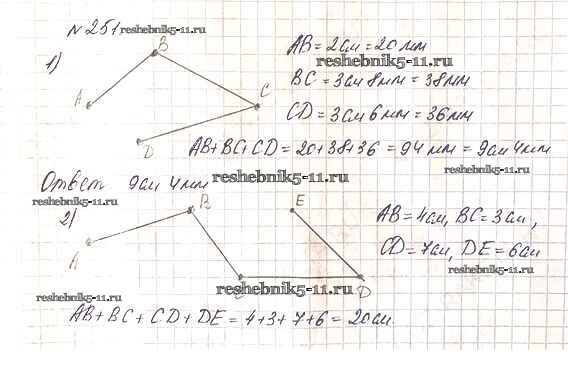 № 251 reshebnik5-11.ru
1)
B
A
C
D
AB = 2см = 20мм
reshebnik5-11.ru
BC = 3см 8мм = 38мм
CD = 3см 6мм = 36мм
AB+BC+CD = 20+38+36 = 94мм = 9см 4мм
reshebnik5-11.ru
Ответ 9см 4мм reshebnik5-11.ru
reshebnik5-11.ru
2)
A
B
E
D
AB = 4см, BC = 3см,
CD = 7см, DE = 6см
reshebnik5-11.ru
reshebnik5-11.ru
reshebnik5-11.ru
AB + BC + CD + DE = 4+3+7+6 = 20см.
reshebnik5-11.ru